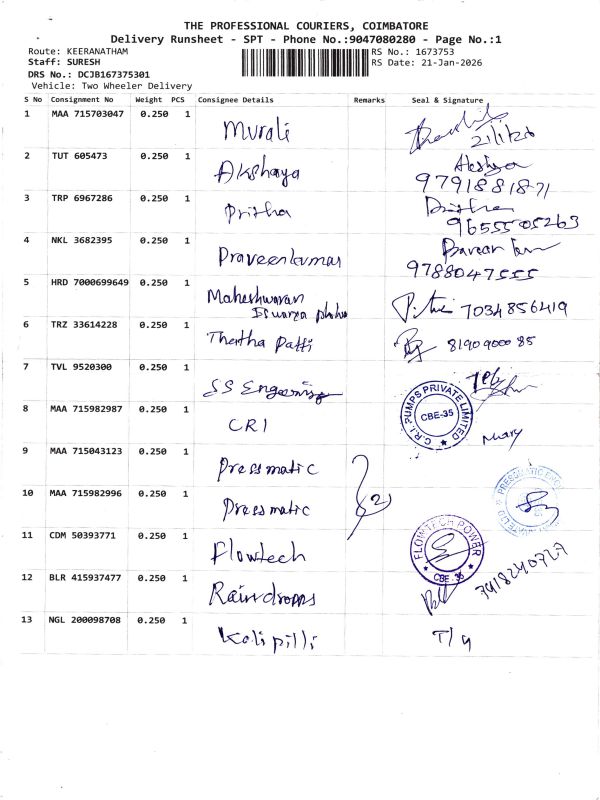 THE PROFESSIONAL COURIERS, COIMBATORE
Delivery Runsheet - SPT - Phone No.:9047080280 - Page No.:1
Route: KEERANATHAM
RS No.: 1673753
Staff: SURESH
RS Date: 21-Jan-2026
DRS No.: DCJB167375301
Vehicle: Two Wheeler Delivery
S No Consignment No Weight PCS Consignee Details Remarks Seal & Signature
1 MAA 715703047 0.250 1 Murali 21/1/26
2 TUT 605473 0.250 1 Akshaya Akshya
9791881871
3 TRP 6967286 0.250 1 Pritha
9655505263
4 NKL 3682395 0.250 1 Praveenkumar
9788047555
5 HRD 7000699649 0.250 1 Maheshwaran
7034856419
6 TRZ 33614228 0.250 1 Thatha Patti 8190900085
7 TVL 9520300 0.250 1 SS Engeering
8 MAA 715982987 0.250 1 CRI C.R.I. PUMPS PRIVATE LIMITED CBE-35
Mary
9 MAA 715043123 0.250 1 Pressmatic
10 MAA 715982996 0.250 1 Pressmatic 2
11 CDM 50393771 0.250 1 Flowtech FLOWTECH POWER CBE-35
12 BLR 415937477 0.250 1 Raindropps
13 NGL 200098708 0.250 1 Kalipilli T/y